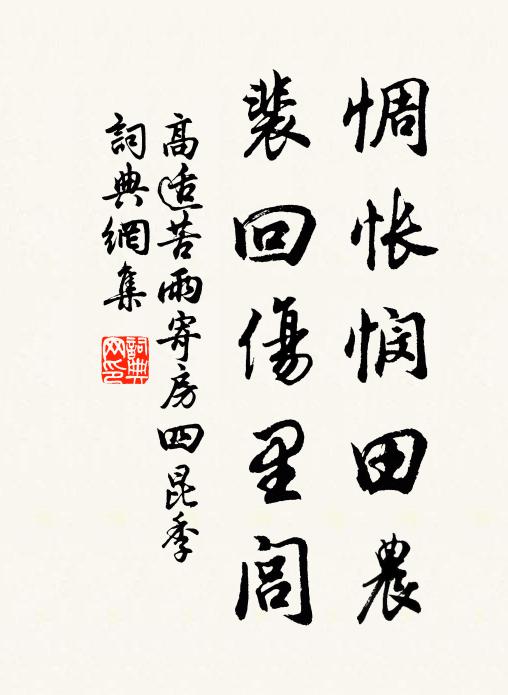 惆怅悯田農
裴回傷里閭
高适苦雨寄房四昆季
詞典網集
詞典網印